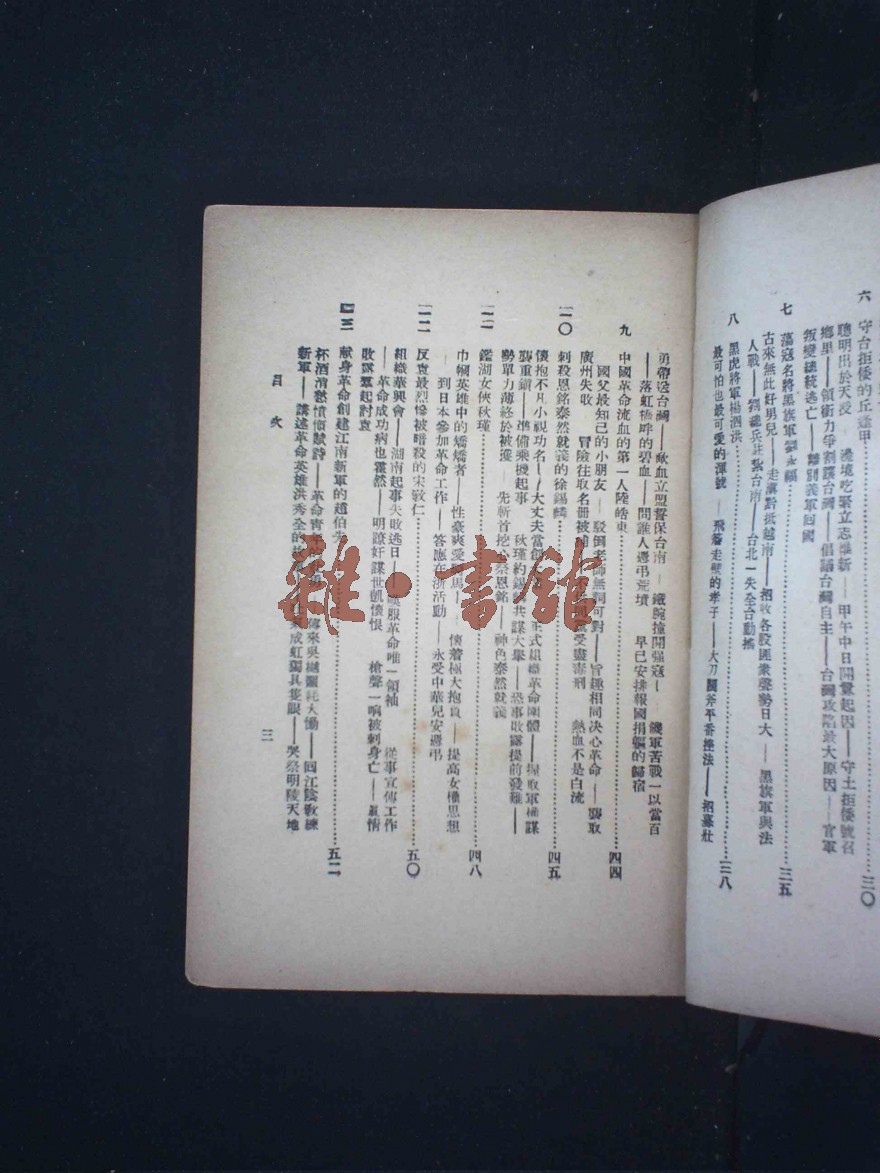 六 守台拒倭的丘逢甲……三〇
聰明出於天授 邊境吃緊立志維新——甲午中日開釁起因——守土拒倭號召
鄉里——領銜力爭割讓台灣——倡議台灣自主——台灣攻陷最大原因——官軍
叛變總統逃亡——離別義軍回國
七 蕩寇名將黑旗軍劉永福……三五
古來無此好男兒——走滇黔抵越南——招收各股匪衆聲勢日大——黑旗軍與法
人戰——劉總兵駐紮台南——台北一失全台動搖
八 黑虎將軍楊泗洪……三八
最可怕也最可愛的渾號——飛簷走壁的孝子——大刀闊斧平番撫法——招募壯
勇帶返台灣——歃血立盟誓保台南——鐵腕撞開强寇——饑軍苦戰一以當百
——落虹橋畔的碧血——問誰人憑弔荒墳 早已安排報國捐軀的歸宿
九 中國革命流血的第一人陸皓東……四四
國父最知己的小朋友——駁倒老師無詞可對——旨趣相同决心革命——襲取
廣州失收 冒險往取名册被捕 受盡毒刑 熱血不是白流
一〇 刺殺恩銘泰然就義的徐錫麟……四五
懷抱不凡小視功名——大丈夫當創 正式組織革命團體——握取軍權謀
襲重鎮——準備乘機起事 秋瑾約錫麟共謀大舉——恐事收露提前發難——
勢單力薄終於被獲——先斬首挖 祭恩銘——神色泰然就義
一一 鑑湖女俠秋瑾……四八
巾幗英雄中的矯矯者——性豪爽愛 馬——懷着極大抱負——提高女權思想
到日本參加革命工作——答應在浙活動——永受中華兒女憑弔
一二 反袁最烈慘被暗殺的宋敎仁……五〇
組織華興會——湖南起事失敗逃日 服革命唯一領袖 從事宣傳工作
——革命成功病也霍然——明諒奸謀世凱懷恨 槍聲一响被刺身亡——眞情
敗露羣起討袁
一三 献身革命創建江南新軍的趙伯先……五二
杯酒消愁憤慨賦詩——革命靑年的 傳來吳樾噩耗大慟——回江陰敎練
新軍——講述革命英雄洪秀全的故 成虹獨具隻眼——哭祭明陵天地
目次
三
雜·書館